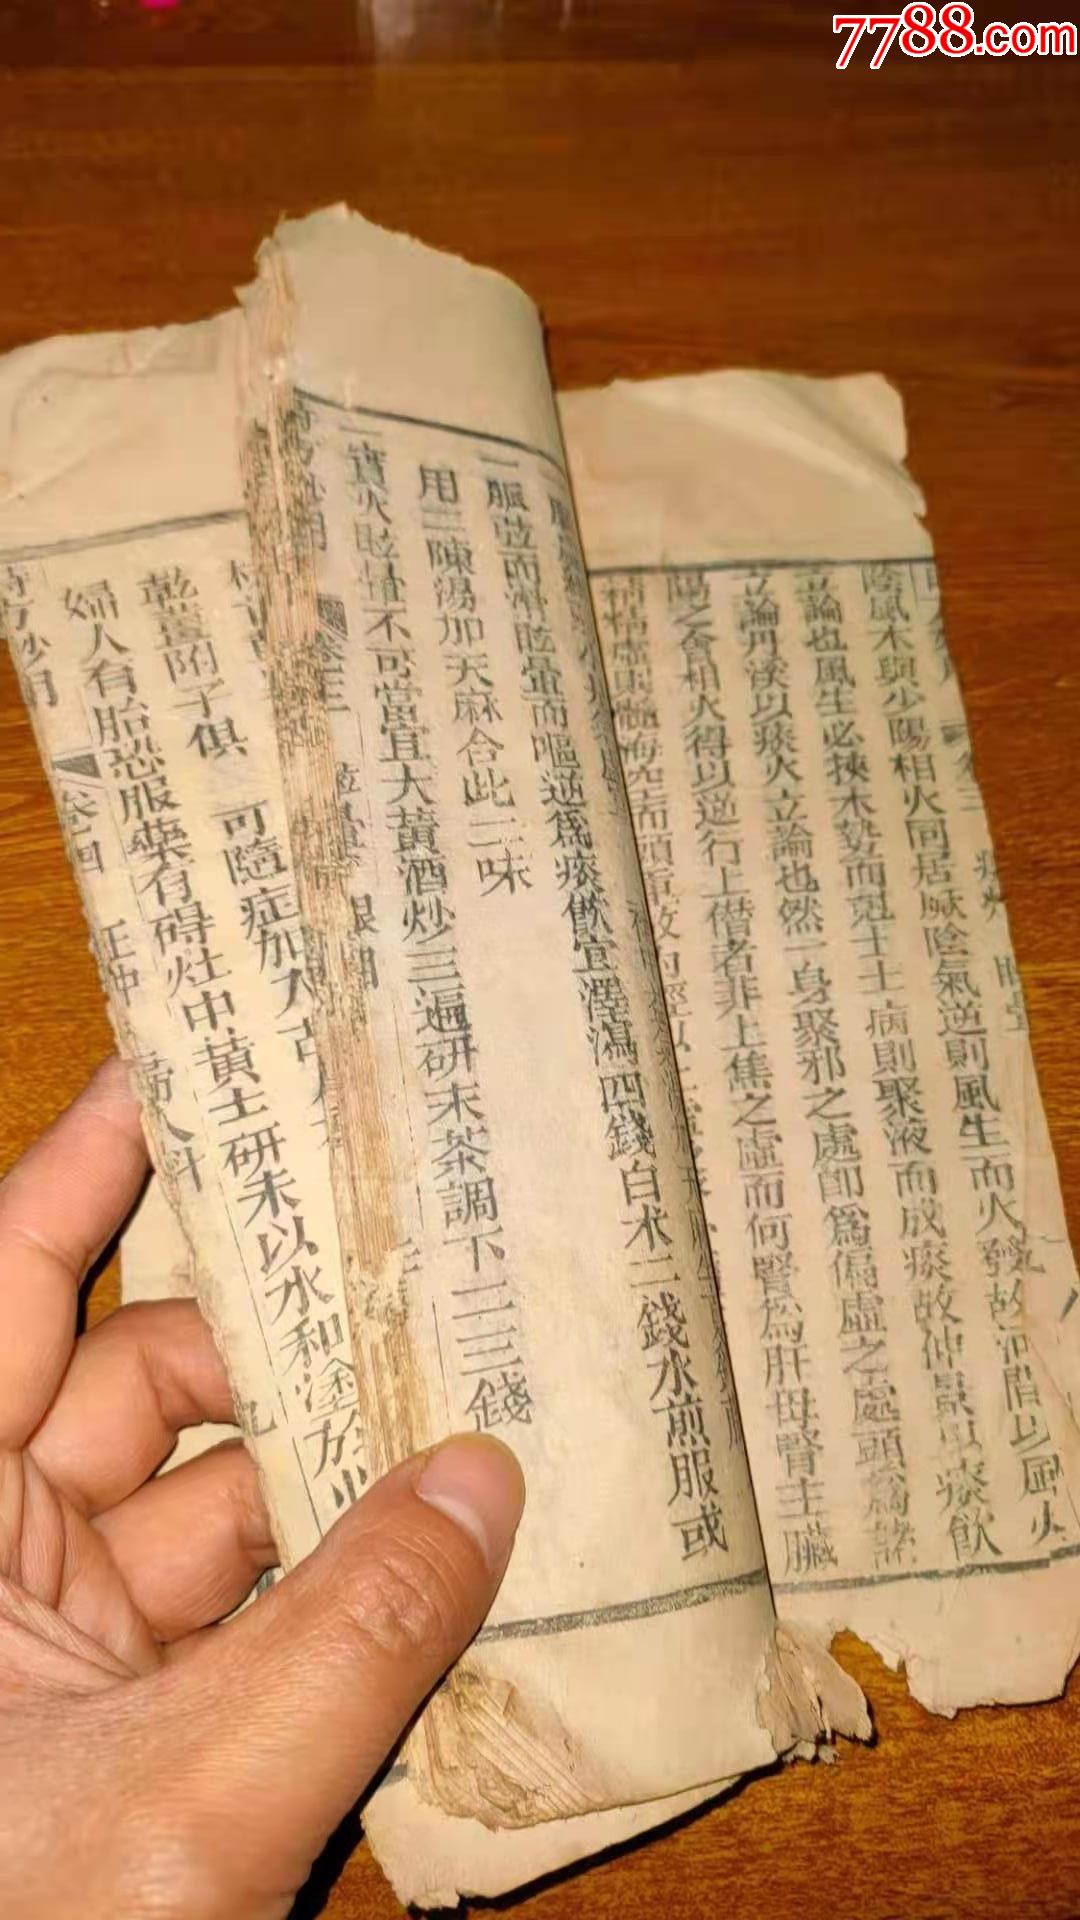 7788.com
陰風木與少陽相火同居厥陰氣逆則風生而火發故河間以風火
立論也風生必挾木勢而剋土土病則聚液而成痰故仲景以痰飲
立論丹溪以痰火立論也然一身聚邪之處即爲偏虛之處頭爲諸
陽之會相火得以逆行上僭者非上焦之虛而何腎爲肝母腎主臟
精精虛則髓海空而頭重故內經以
一脈弦而滑眩暈而嘔逆爲痰飲宜澤瀉四錢白术二錢水煎服或
用二陳湯加天麻合此二味
一實火眩暈不可當宜大黃酒炒三遍研末茶調下二三錢
時方妙用 卷三 眩暈 眼目
乾薑附子俱 可隨症加入
婦人有胎恐服藥有碍灶中黃土研末以水和塗
時方妙用 卷四 婦人科